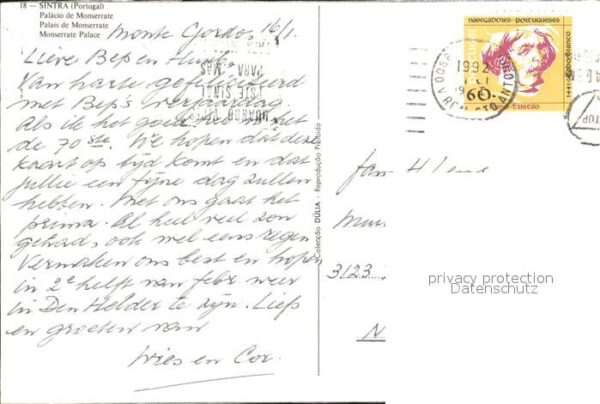 18 — SINTRA (Portugal)
Palácio de Monserrate
Palais de Monserrate
Monserrate Palace
Monte Gordo, 16/1.
Lieve Bep en
Van harte gefeliciteerd
met Bep's verjaardag.
Als ik het goed heb is het
de 70ste. We hopen dat deze
kaart op tijd komt en dat
jullie een fijne dag zullen
hebben. Met ons gaat het
prima. Al heel veel zon
gehad, ook wel eens regen
Vermaken ons best en hopen
in 2e helft van febr weer
in Den Helder te zijn. Liefs
en groeten van
Wies en Cor.
Colecção DÚLIA - Reprodução Proibida
NAVEGADORES PORTUGUESES
1992
60.
STOP
3123
N
privacy protection
Datenschutz